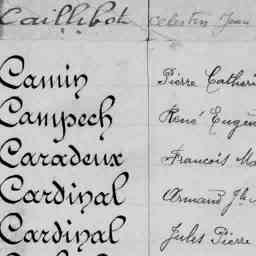 Caillibot Celestin Jean
Camin Pierre Catheri
Campech René Eugèn
Caradeux Francois Ma
Cardinal Armand Jh
Cardinal Jules Pierre